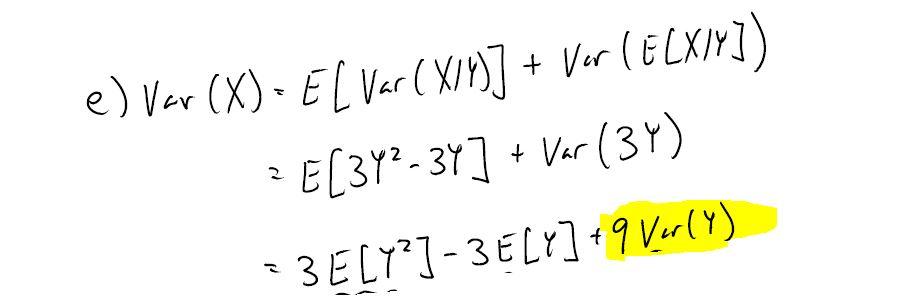 e) Var (X) = E[Var(X|Y)] + Var (E[X|Y])
= E[3Y²-3Y] + Var(3Y)
= 3E[Y²]-3E[Y] + 9 Var(Y)